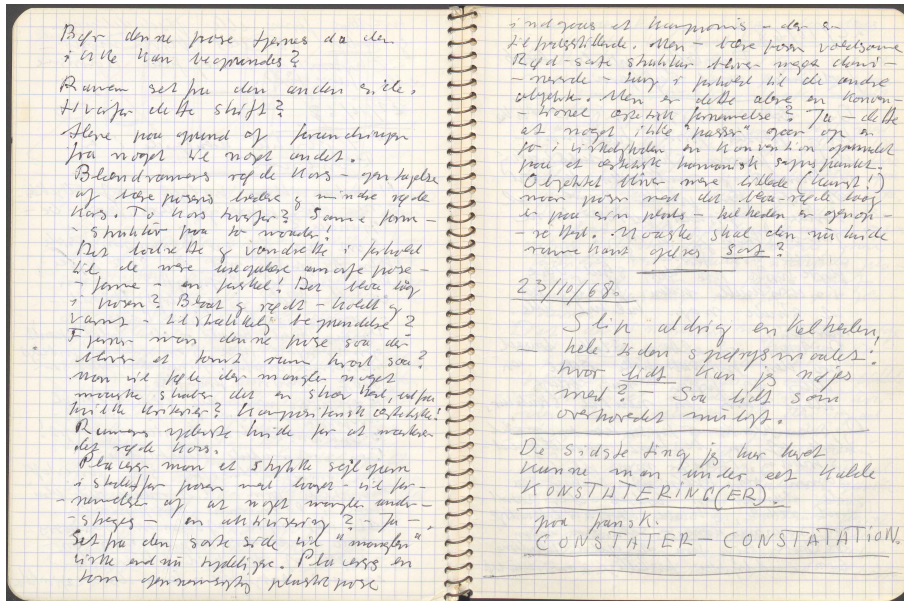 Bør denne pose fjernes da den
ikke kan begrundes?
Rammen set fra den anden side.
Hvorfor dette skift?
Alene paa grund af forandringen
fra noget til noget andet.
Blændrammens røde kors - gentagelse
af bæreposens bredere og mindre røde
kors. To kors hvorfor? Samme form-
-struktur paa to maader!
Det lodrette og vandrette i forhold
til de mere uregulære amorfe pose-
-forme - en forskel! Det blaa låg
i posen? Blaat og rødt - koldt og
varmt - tilstrækkelig begrundelse?
Fjerner man denne pose saa der
bliver et tomt rum hvad saa?
man vil føle der mangler noget
maaske skaber det en skør hed, ud fra
hvilke kriterier? Kompositorisk æstetiske!
Rammens yderste hvide for at markere
det røde kors.
Placerer man et stykke sejlgarn
i stedet for posen med laaget - vil for-
-nemmelsen af at noget mangler under-
-streges - en aktivisering? - Ja -,
set fra den sorte side vil "manglen"
virke endnu tydeligere. Placeres en
tom gennemsigtig plastikpose
indgaas et kompromis - der er
tilfredsstillende. Men - bæreposens voldsomme
Rød-sorte struktur bliver meget domi-
-nerende - i forhold til de andre
objekter. Men er dette alene en konven-
-tionel æstetisk fornemmelse? Ja - dette
at noget ikke "passer" gaar op er
jo i virkeligheden en konvention grundet
paa et æstetisk harmonisk synspunkt.
Objektet bliver mere (kunst!)
naar posen med det blaa-røde laag
er paa sin plads - helheden er genop-
-rettet. Maaske skal den nu hvide
rammekant gøres sort?
23/10/68.
Slip aldrig enkelheden,
- hele tiden spørgsmaalet:
hvor lidt kan jeg nøjes
med? - Saa lidt som
overhovedet muligt.
De sidste ting jeg har lavet
kunne man under eet kalde
KONSTATERING(ER).
paa fransk.
CONSTATER - CONSTATATION.